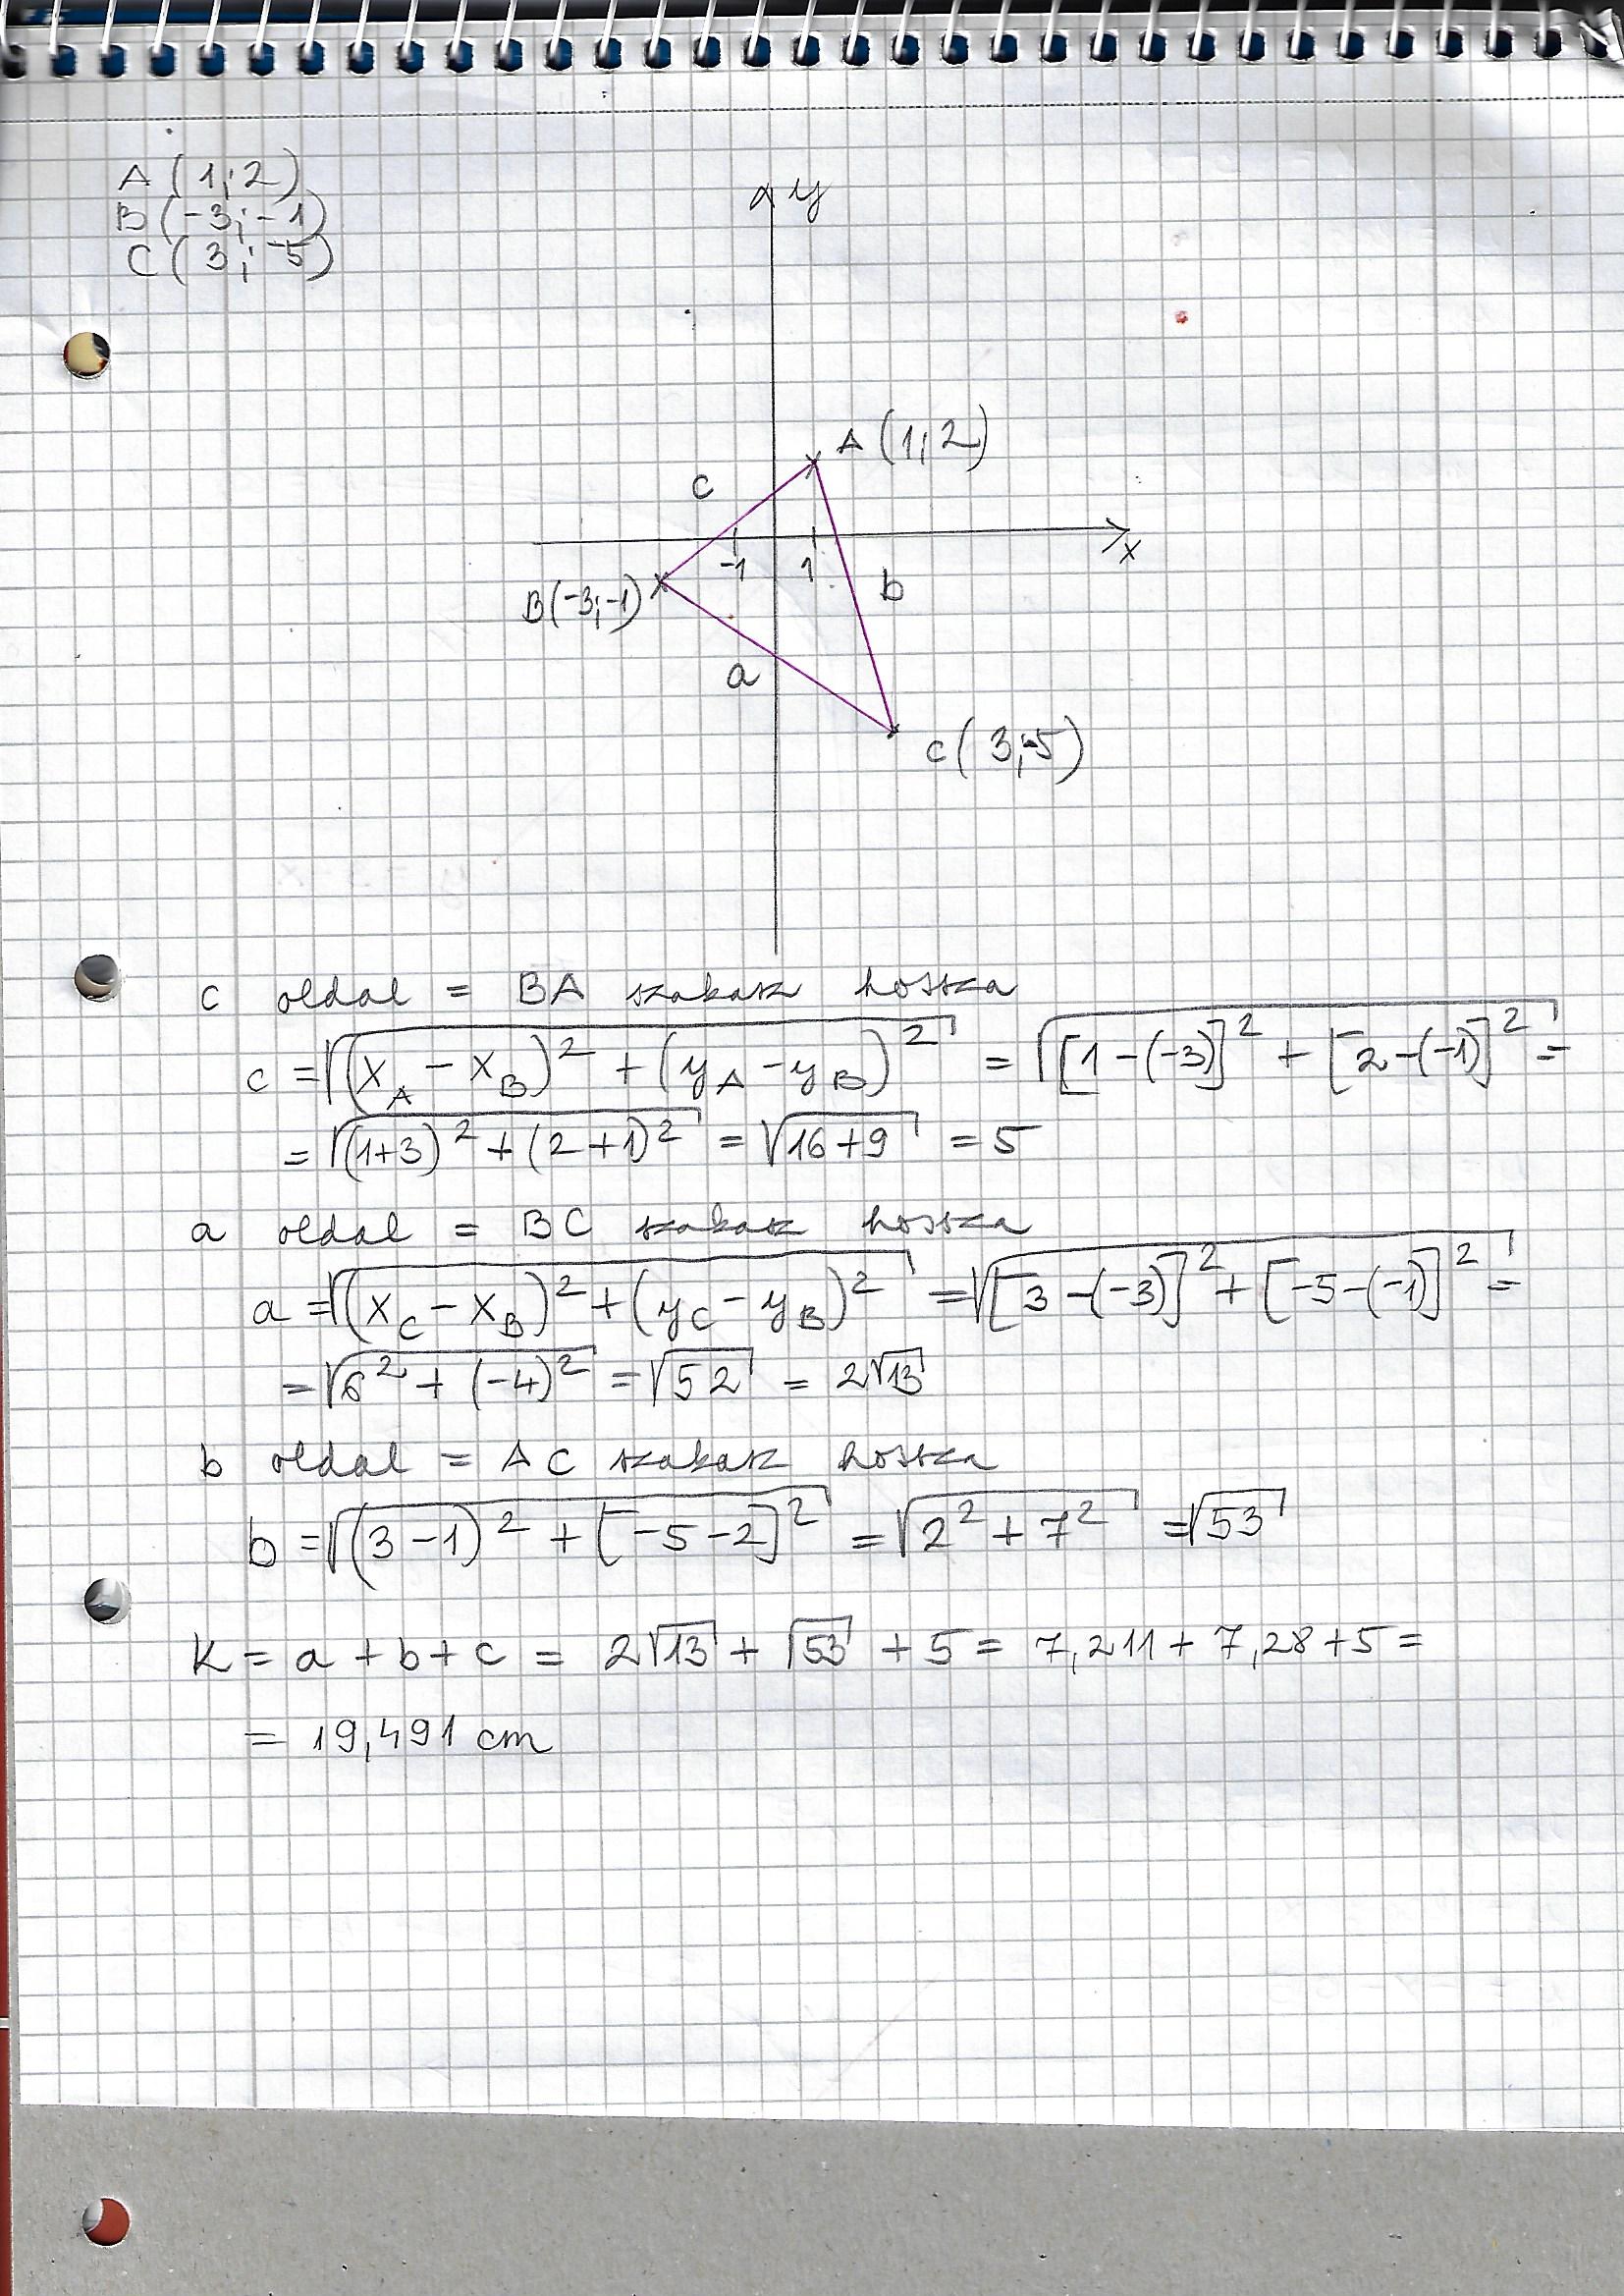 A(1;2)
B(-3;-1)
C(3;-5)
y
A(1;2)
c
x
-1 1
b
B(-3;-1)
a
C(3;-5)
c oldal = BA szakasz hossza
c = √((x_A - x_B)² + (y_A - y_B)²) = √([1-(-3)]² + [2-(-1)]²) =
= √((1+3)² + (2+1)²) = √(16+9) = 5
a oldal = BC szakasz hossza
a = √((x_C - x_B)² + (y_C - y_B)²) = √([3-(-3)]² + [-5-(-1)]²) =
= √(6² + (-4)²) = √52 = 2√13
b oldal = AC szakasz hossza
b = √((3-1)² + [-5-2]²) = √(2² + 7²) = √53
K = a + b + c = 2√13 + √53 + 5 = 7,211 + 7,28 + 5 =
= 19,491 cm